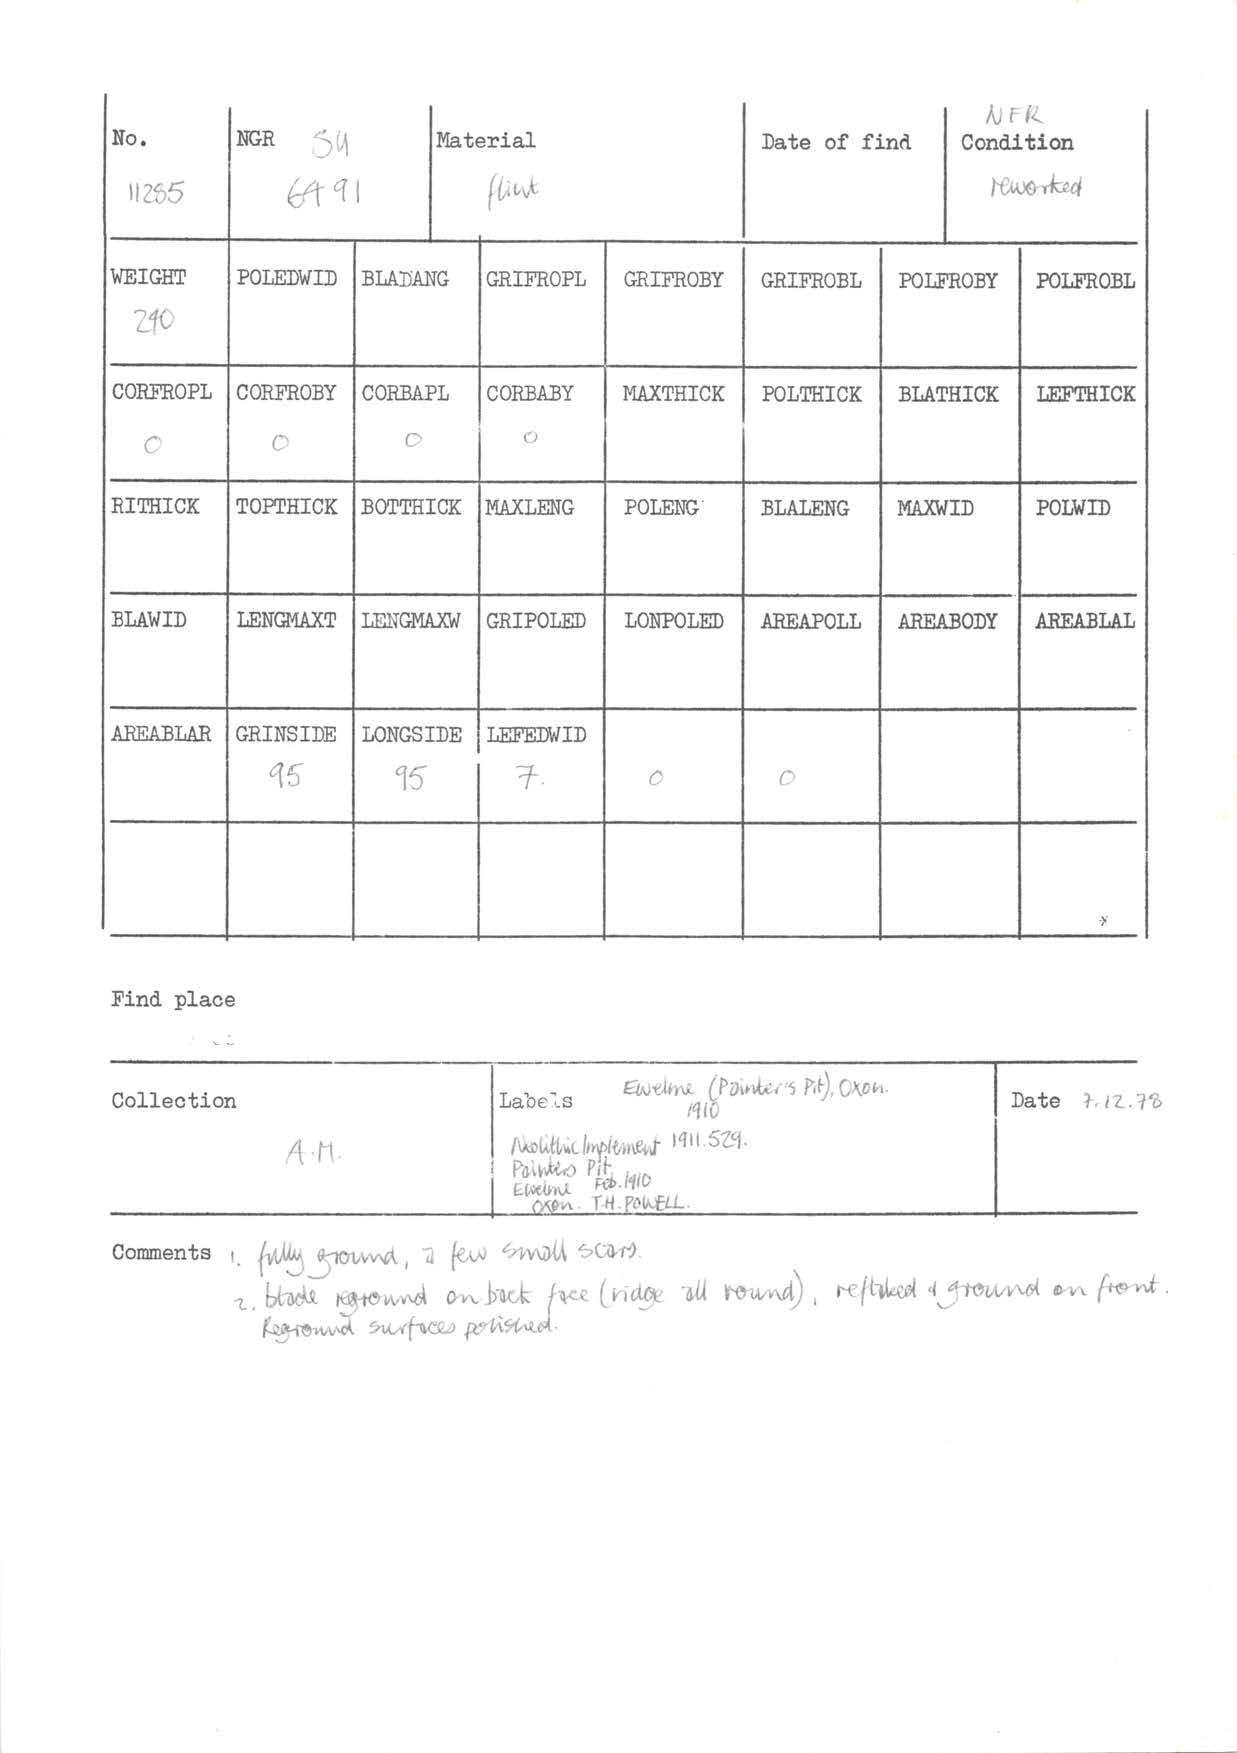 NFR
No. NGR SU Material Date of find Condition
11285 6491 flint reworked
WEIGHT POLEDWID BLADANG GRIFROPL GRIFROBY GRIFROBL POLFROBY POLFROBL
290
CORFROPL CORFROBY CORBAPL CORBABY MAXTHICK POLTHICK BLATHICK LEFTHICK
0 0 0 0
RITHICK TOPTHICK BOTTHICK MAXLENG POLENG BLALENG MAXWID POLWID
BLAWID LENGMAXT LENGMAXW GRIPOLED LONPOLED AREAPOLL AREABODY AREABLAL
AREABLAR GRINSIDE LONGSIDE LEFEDWID
95 95 7. 0 0
Find place
Collection
A.M.
Labels Ewelme (Painter's Pit), Oxon.
1910
Neolithic Implement 1911.529.
Painters Pit
Ewelme Feb. 1910
Oxon. T.H. POWELL.
Date 7.12.78
Comments 1. fully ground, a few small scars.
2. blade reground on back face (ridge all round), reflaked & ground on front.
Reground surfaces polished.